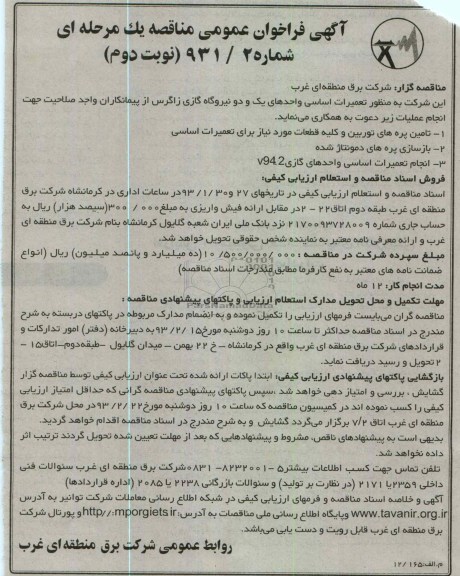 آگهی فراخوان عمومی مناقصه یك مرحله ای
شماره ۲ / ۹۳۱ (نوبت دوم)
مناقصه گزار: شرکت برق منطقه‌ای غرب
این شرکت به منظور تعمیرات اساسی واحدهای یک و دو نیروگاه گازی زاگرس از پیمانکاران واجد صلاحیت جهت
انجام عملیات زیر دعوت به همکاری می‌نماید.
۱- تامین پره های توربین و کلیه قطعات مورد نیاز برای تعمیرات اساسی
۲- بازسازی پره های دمونتاژ شده
۳- انجام تعمیرات اساسی واحدهای گازی v94.2
فروش اسناد مناقصه و استعلام ارزیابی کیفی:
اسناد مناقصه و استعلام ارزیابی کیفی در تاریخهای ۲۷ و ۳۰ / ۱/ ۹۳ در ساعات اداری در کرمانشاه شرکت برق
منطقه ای غرب طبقه دوم اتاق ۲۲ - ۲ در مقابل ارائه فیش واریزی به مبلغ ۰۰۰ / ۳۰۰ (سیصد هزار) ریال به
حساب جاری شماره ۲۱۷۰۰۹۳۷۲۸۰۰۹ نزد بانک ملی ایران شعبه گلایول کرمانشاه بنام شرکت برق منطقه ای
غرب و ارائه معرفی نامه معتبر به نماینده شخص حقوقی تحویل خواهد شد.
مبلغ سپرده شرکت در مناقصه : ۰۰۰ /۵۰۰/۰۰۰ /۱۰ (ده میلیارد و پانصد میلیون) ریال (انواع
ضمانت نامه های معتبر به نفع کارفرما مطابق مندرجات اسناد مناقصه)
مدت انجام کار: ۱۲ ماه
مهلت تکمیل و محل تحویل مدارک استعلام ارزیابی و پاکتهای پیشنهادی مناقصه :
مناقصه گران می‌بایست فرمهای ارزیابی را تکمیل نموده و به انضمام مدارک مربوطه در پاکتهای دربسته به شرح
مندرج در اسناد مناقصه حداکثر تا ساعت ۱۰ روز دوشنبه مورخ ۱۵ /۲/ ۹۳ به دبیرخانه (دفتر) امور تدارکات و
قراردادهای شرکت برق منطقه ای غرب واقع در کرمانشاه - خ ۲۲ بهمن - میدان گلایول -طبقه‌دوم-اتاق ۱۵ -
۲ تحویل و رسید دریافت نماید.
بازگشایی پاکتهای پیشنهادی ارزیابی کیفی: ابتدا پاکات ارائه شده تحت عنوان ارزیابی کیفی توسط مناقصه گزار
گشایش ، بررسی و امتیاز دهی خواهد شد .سپس پاکتهای پیشنهادی مناقصه گرانی که حداقل امتیاز ارزیابی
کیفی را کسب نموده اند در کمیسیون مناقصه که ساعت ۱۰ روز دوشنبه مورخ ۲۲ /۲/ ۹۳ در محل شرکت برق
منطقه ای غرب اتاق ۷/۲ برگزار می‌گردد گشایش و به شرح مندرج در اسناد مناقصه اقدام خواهد گردید.
بدیهی است به پیشنهادهای ناقص، مشروط و پیشنهادهایی که بعد از مهلت تعیین شده تحویل گردند ترتیب اثر
داده نخواهد شد.
تلفن تماس جهت کسب اطلاعات بیشتر ۵ -۸۲۳۲۰۰۱- ۰۸۳۱ شرکت برق منطقه ای غرب سنوالات فنی
داخلی ۲۳۵۹ یا ۲۱۷۱ (در نظارت بر تولید) و سنوالات بازرگانی ۲۲۳۸ یا ۲۰۸۵ (اداره قراردادها)
آگهی و خلاصه اسناد مناقصه و فرمهای ارزیابی کیفی در شبکه اطلاع رسانی معاملات شرکت توانیر به آدرس
www.tavanir.org.ir وپایگاه اطلاع رسانی ملی مناقصات به آدرس: http//:mporgiets.ir و پورتال شرکت
برق منطقه ای غرب قابل رویت و دست یابی می‌باشد.
روابط عمومی شرکت برق منطقه‌ای غرب
م.الف:۱۲/۱۶۵